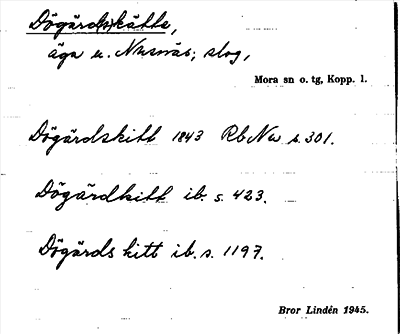 Dögård(s)kätte,
äga u. Nusnäs; skog,
Mora sn o. tg, Kopp. l.
Dögårdskitt 1843 Rb Nu s. 301.
Dögårdkitt ib. s. 423.
Dögårds kitt ib. s. 1197.
Bror Lindén 1945.